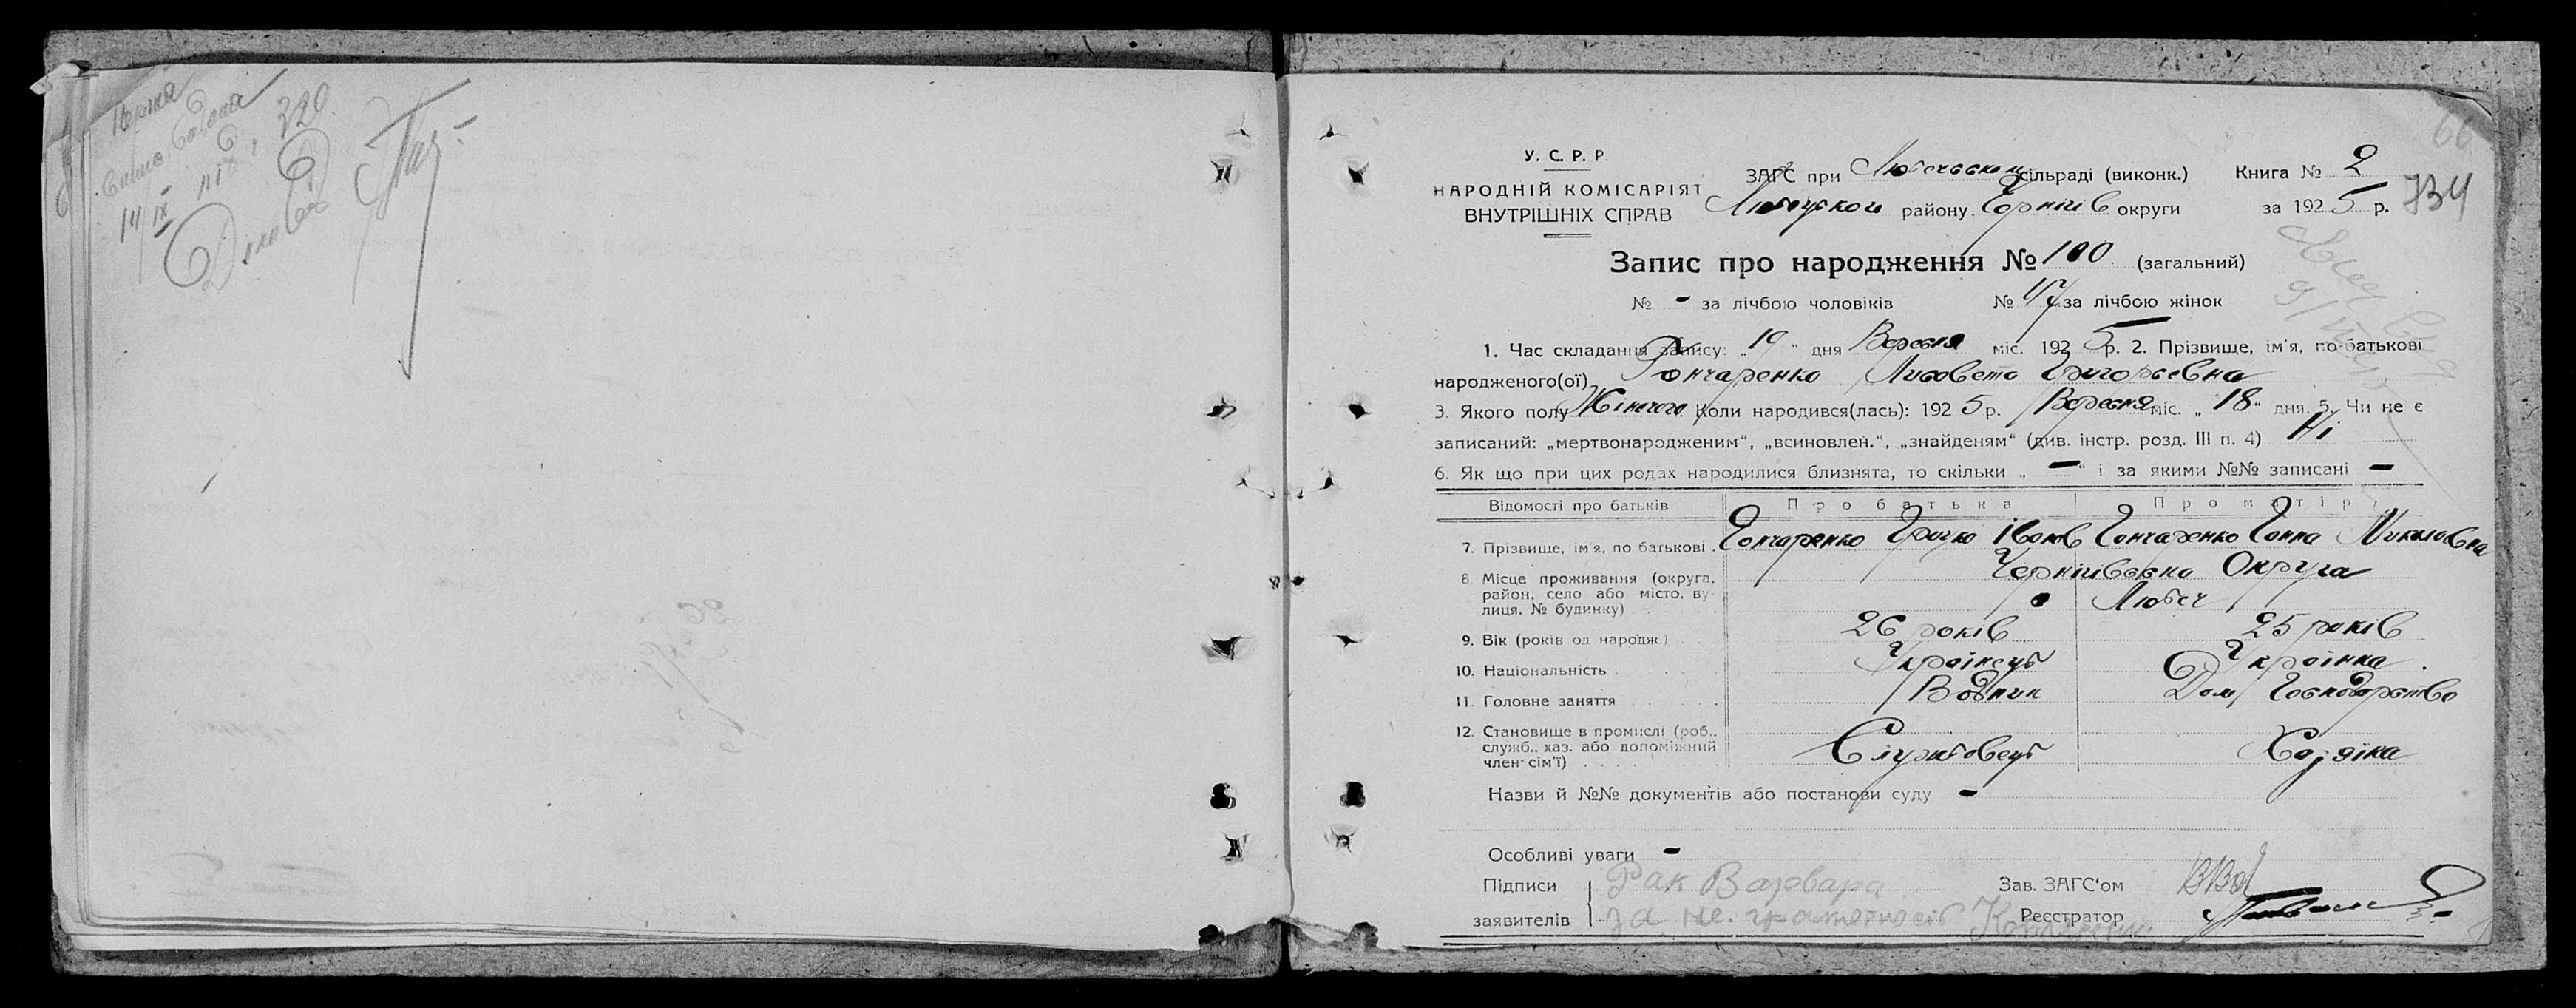 320
У. С. Р. Р.
НАРОДНІЙ КОМІСАРІЯТ
ВНУТРІШНІХ СПРАВ
ЗАГС при Любечьском сільраді (виконк.) Книга № 2
Любецькои району Чорнігів округи за 1925 р. 734
Запис про народження № 100 (загальний)
№ - за лічбою чоловіків № 47 за лічбою жінок
1. Час складання запису: „19“ дня Вересня міс. 1925 р. 2. Прізвище, ім'я, по-батькові
народженого(ої) Гончаренко Лизовета Григорьевна
3. Якого полу Жіночого Коли народився(лась): 1925 р. Вересня міс. „18“ дня. 5. Чи не є
записаний: „мертвонародженим“, „всиновлен.“, „знайденям“ (див. інстр. розд. III п. 4) Ні
6. Як що при цих родах народилися близнята, то скільки „—“ і за якими №№ записані —
Відомості про батьків Про батька Про матір
7. Прізвище, ім'я, по батькові Гончаренко Грицко Гончаренко Ганна Миколовна
8. Місце проживання (округа, Чернігівська Округа
район, село або місто, ву- Любеч
лиця, № будинку)
9. Вік (років од народж.) 26 років 25 років
10. Національність Українець Українка
11. Головне заняття Водник Дом Господарство
12. Становище в промислі (роб., служб., хаз. або допоміжний член сім'ї) Службовець Хазяіка
Назви й №№ документів або постанови суду -
Особливі уваги -
Підписи Рак Варвара Зав. ЗАГС'ом
заявителів за не. грамотност Реєстратор